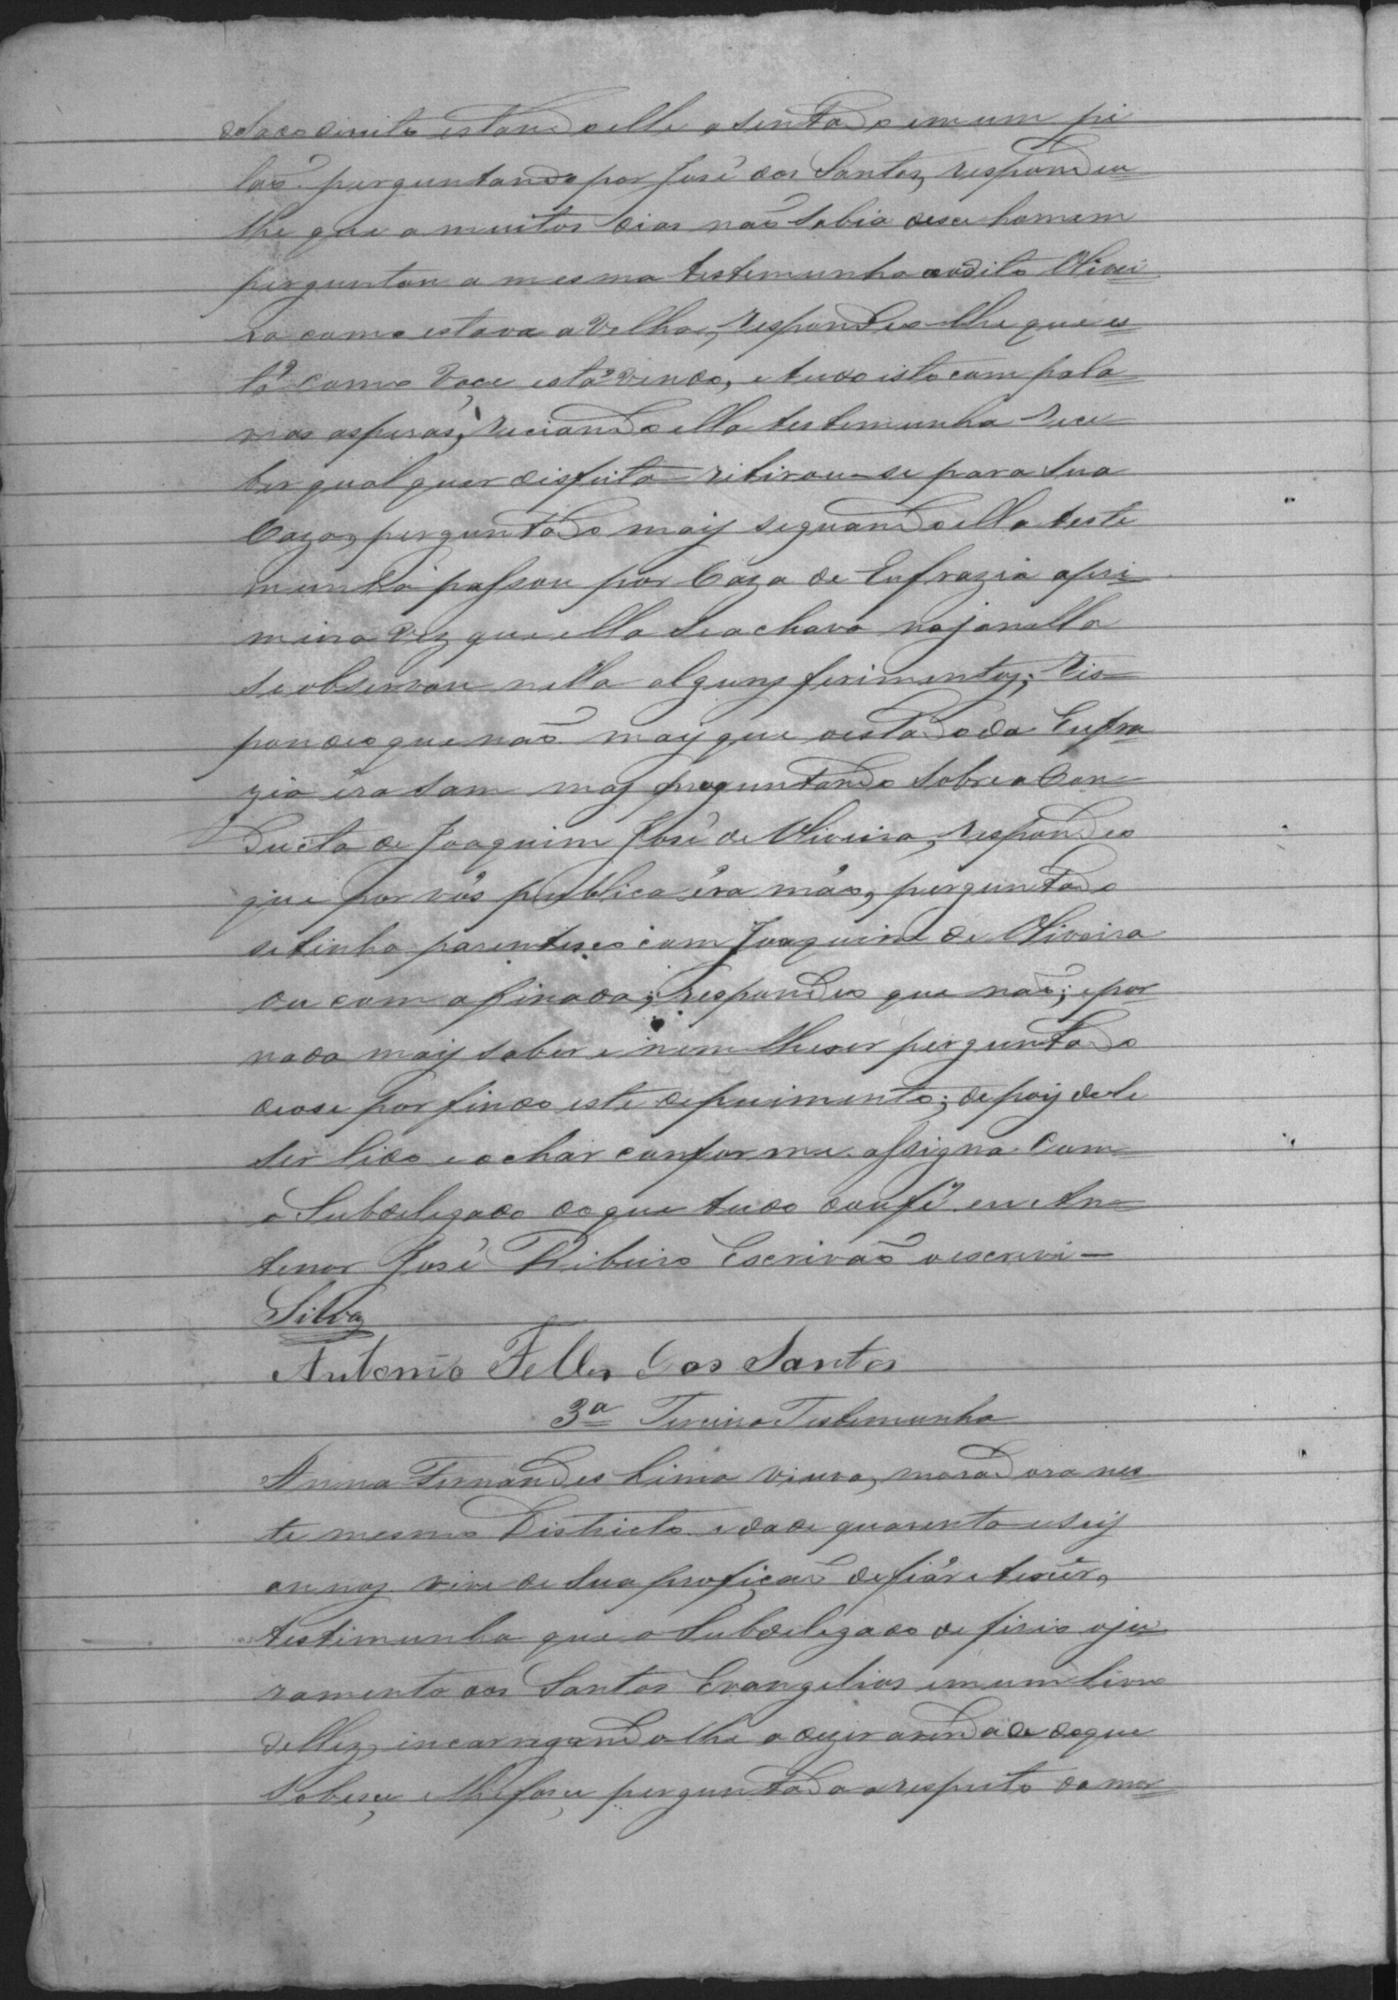 estando elle asentado em um pi
lão perguntando por José dos Santos, respondeu
lhe que a muitos dias não sabia dese homem
perguntou a mesma testemunha ao dito Olivei
ra como estava a velha, respondeo lhe que es
tá como voçe está vendo, e tudo isto com pala
vras asperas, reciando ella testemunha rece
ber qualquer disfeita ritirou-se para sua
Caza, perguntado maij seguando ella teste
munha passou por Caza de Eufrazia apri
meira vez que ella se achava najanella
se observou nella algunz ferimentoz; res
pondeo que não maij que oestado da Eufra
zia éra sam maz preguntando sobre a Con
ducta de Joaquim José de Oliveira, respondeo
que por vós publica éra máo, perguntado
setinha parentesco com Joaquim de Oliveira
ou com a finada; respondeo que não; epor
nada maij saber e nem lhe ser perguntado
deose por findo este depuimento; depoij de le
ser lido e achar conforme assigna Com
o Subdelegado doque tudo doufé eu An
tenor José Ribeiro Escrivão oescrevi
Silva
Antonio Telles dos Santos
3ª Terceira Testemunha
Anna Fernandes Lima viuva, moradora nes
te mesmo Districto idade quarenta eseij
annoz vive de sua profiçaõ defiár e tesêr,
testimunha que o Subdelegado defirio oju
ramento aos Santos Evangelios em um livro
dellez, incarregando lhe a dizer averdade doque
Sobese e lhe fose perguntado arespeito da mor